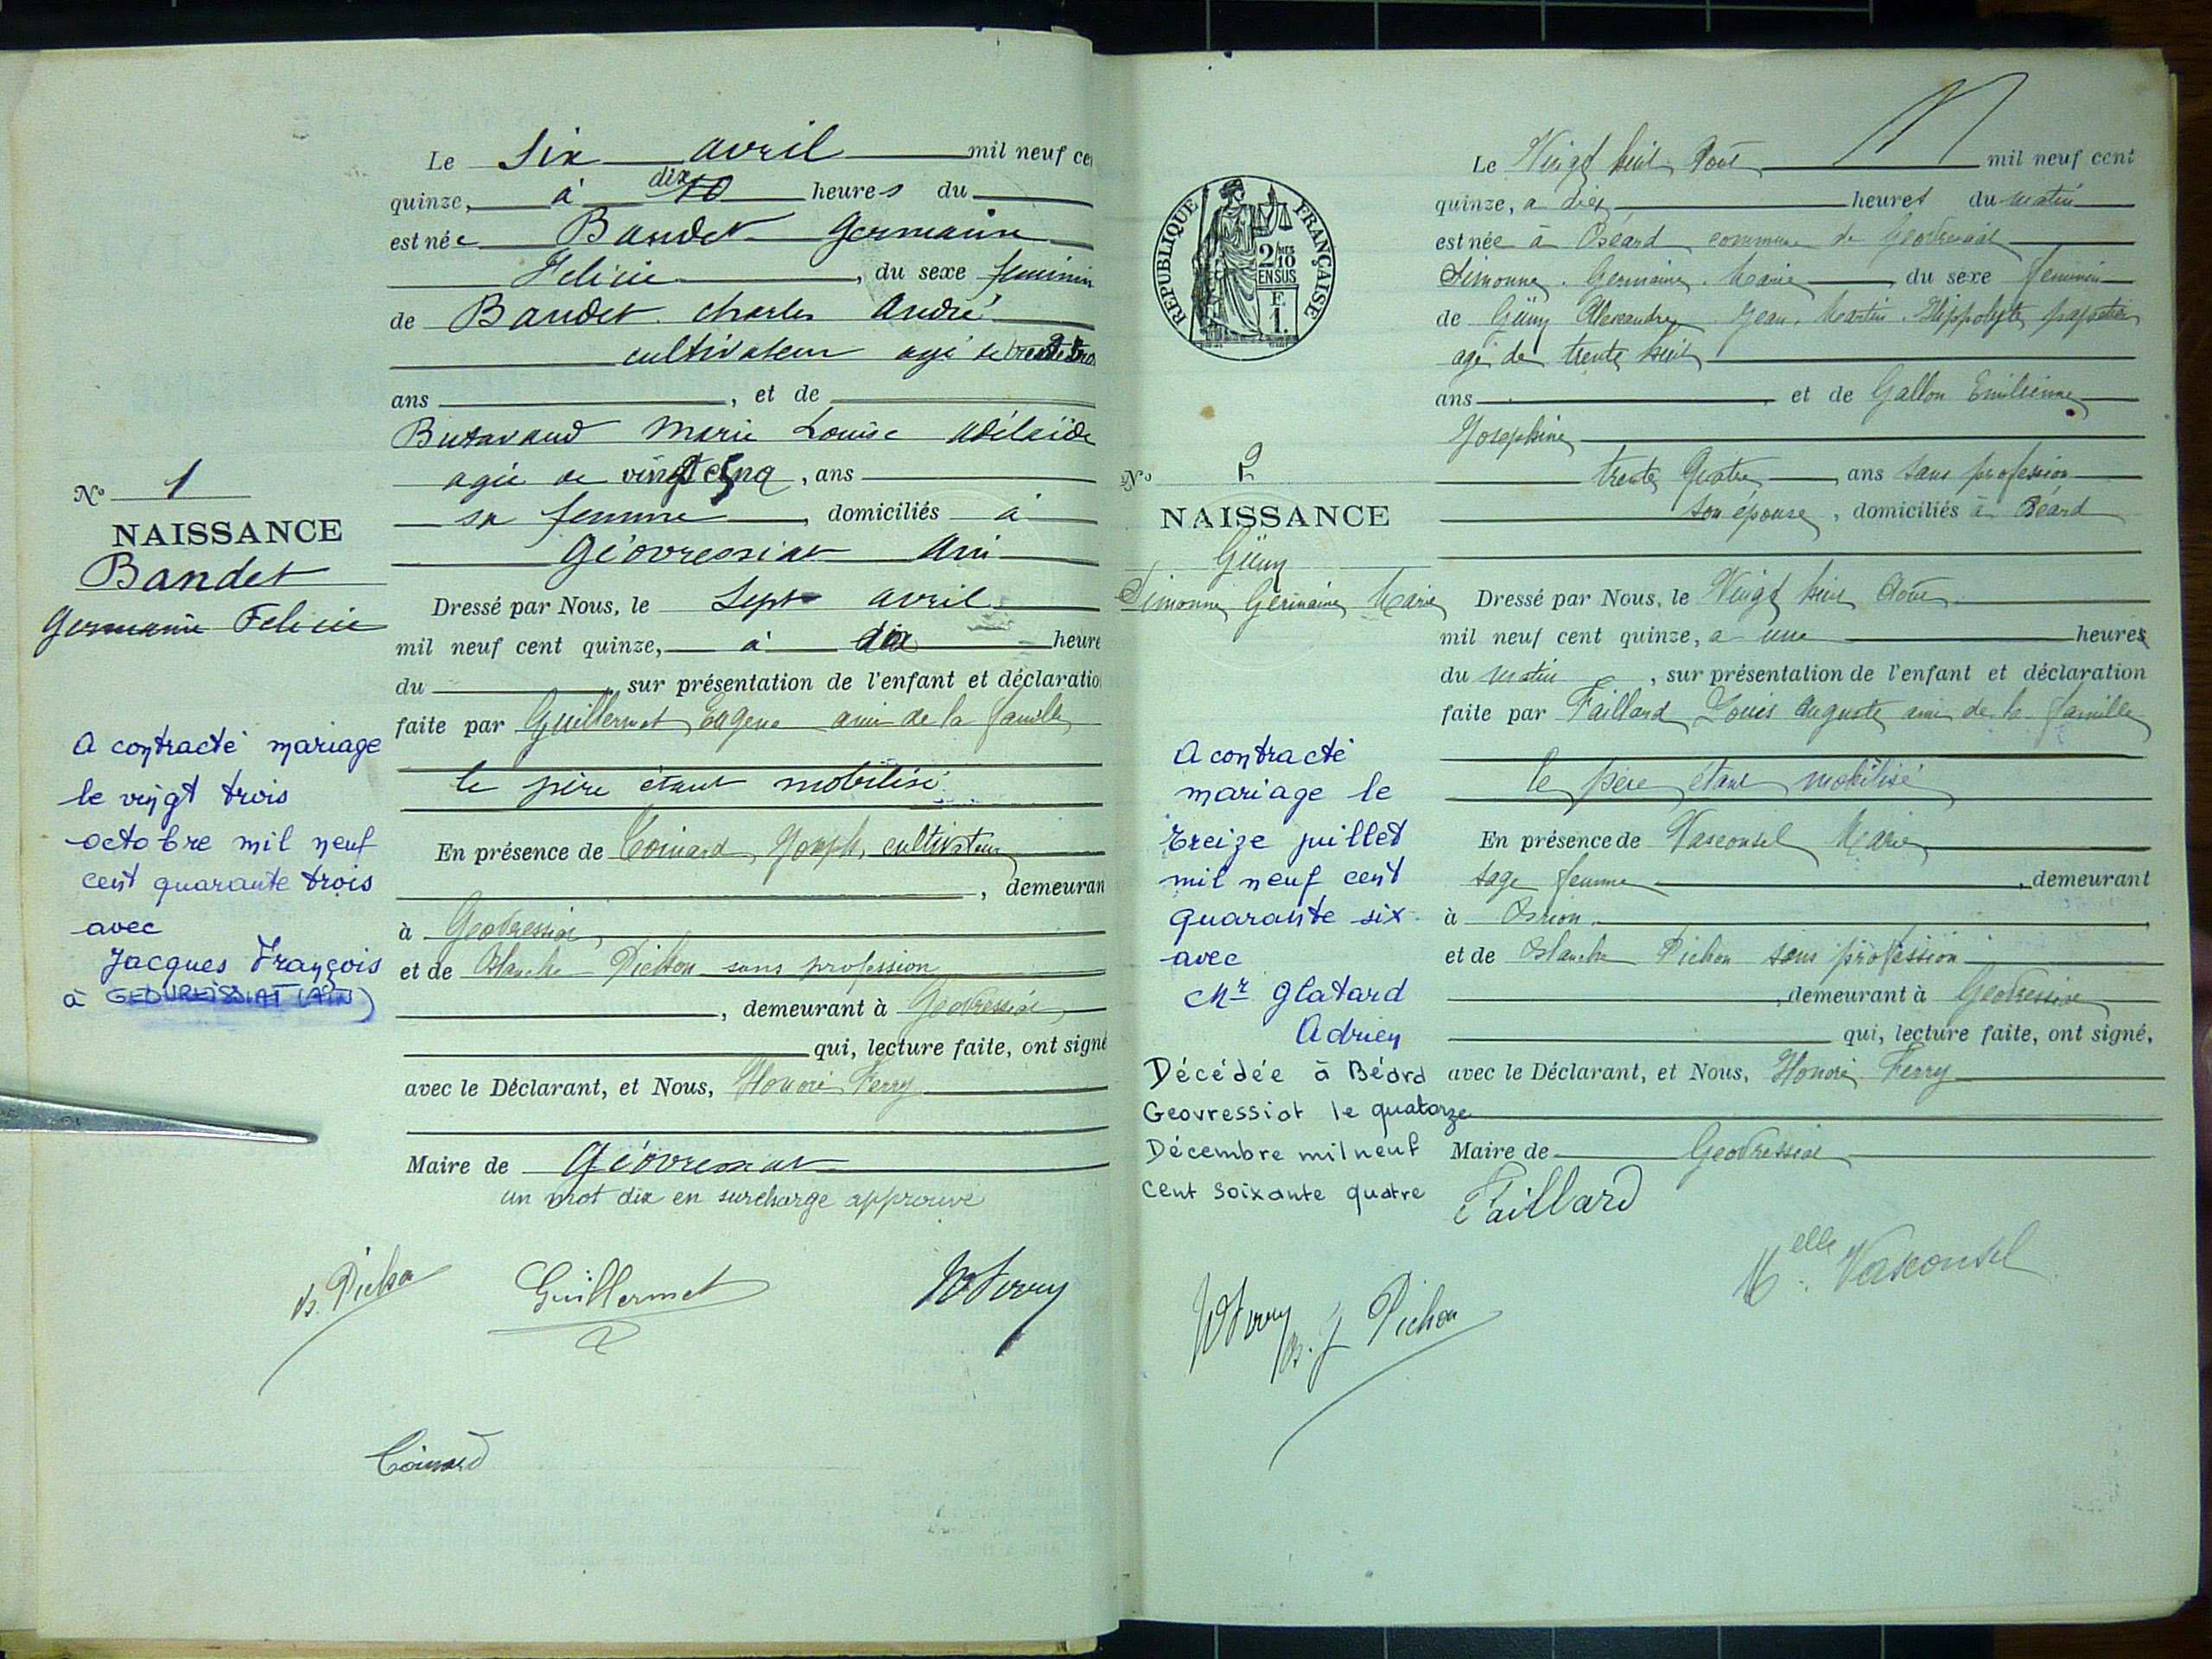 Le six avril mil neuf ce
quinze, à dix 10 heures du
est née Bandet Germaine
Felicie, du sexe feminin
de Bandet Charles André
cultivateur agé de trente trois
ans, et de
Butavand Marie Louise Adélaïde
agée de vingt cinq, ans
sa femme, domiciliés à
Géovressiat Ain
Nº 1
NAISSANCE
Bandet
Germaine Felicie
Dressé par Nous, le Sept avril
mil neuf cent quinze, à dix heure
du, sur présentation de l'enfant et déclaratio
faite par Guillermet Eugene ami de la famille
le père étant mobilisé
En présence de Coinard Joseph, cultivateur
, demeuran
à Geovressiat,
et de Blanche Pichon sans profession
, demeurant à Geovressiat,
qui, lecture faite, ont signé
avec le Déclarant, et Nous, Honoré Ferry
Maire de Géovressiat
un mot dix en surcharge approuvé
A contracté mariage
le vingt trois
octobre mil neuf
cent quarante trois
avec
Jacques François
à GEOVREISSIAT (AIN)
B. Pichon Guillermet Ferry
Coinard
RÉPUBLIQUE FRANÇAISE
2/10 MES
EN SUS
F.
1.
Le Vingt huit Aout mil neuf cent
quinze, a dix heures du matin
est née à Béard commune de Geovressiat
Simonne. Germaine. Marie, du sexe feminin
de Alexandre Jean. Martin. Hippolyte papetier
agé de trente huit
ans, et de Gallon Emilienne
Josephine
trente Quatre, ans sans profession
son épouse, domiciliés à Béard
Nº 2
NAISSANCE
Simonne Germaine Marie
Dressé par Nous, le Vingt huit Aout
mil neuf cent quinze, a une heures
du matin, sur présentation de l'enfant et déclaration
faite par Faillard Louis Auguste ami de la famille
le père étant mobilisé
En présence de Vasconsel Marie
sage femme, demeurant
à Brion,
et de Blanche Pichon sans profession
, demeurant à Geovressiat
qui, lecture faite, ont signé,
avec le Déclarant, et Nous, Honoré Ferry
Maire de Geovressiat
A contracté
mariage le
treize juillet
mil neuf cent
quarante six
avec
Mr Glatard
Adrien
Décédée à Béard
Geovressiat le quatorze
Décembre mil neuf
cent soixante quatre
Faillard
Melle Vasconsel
Ferry B. J Pichon